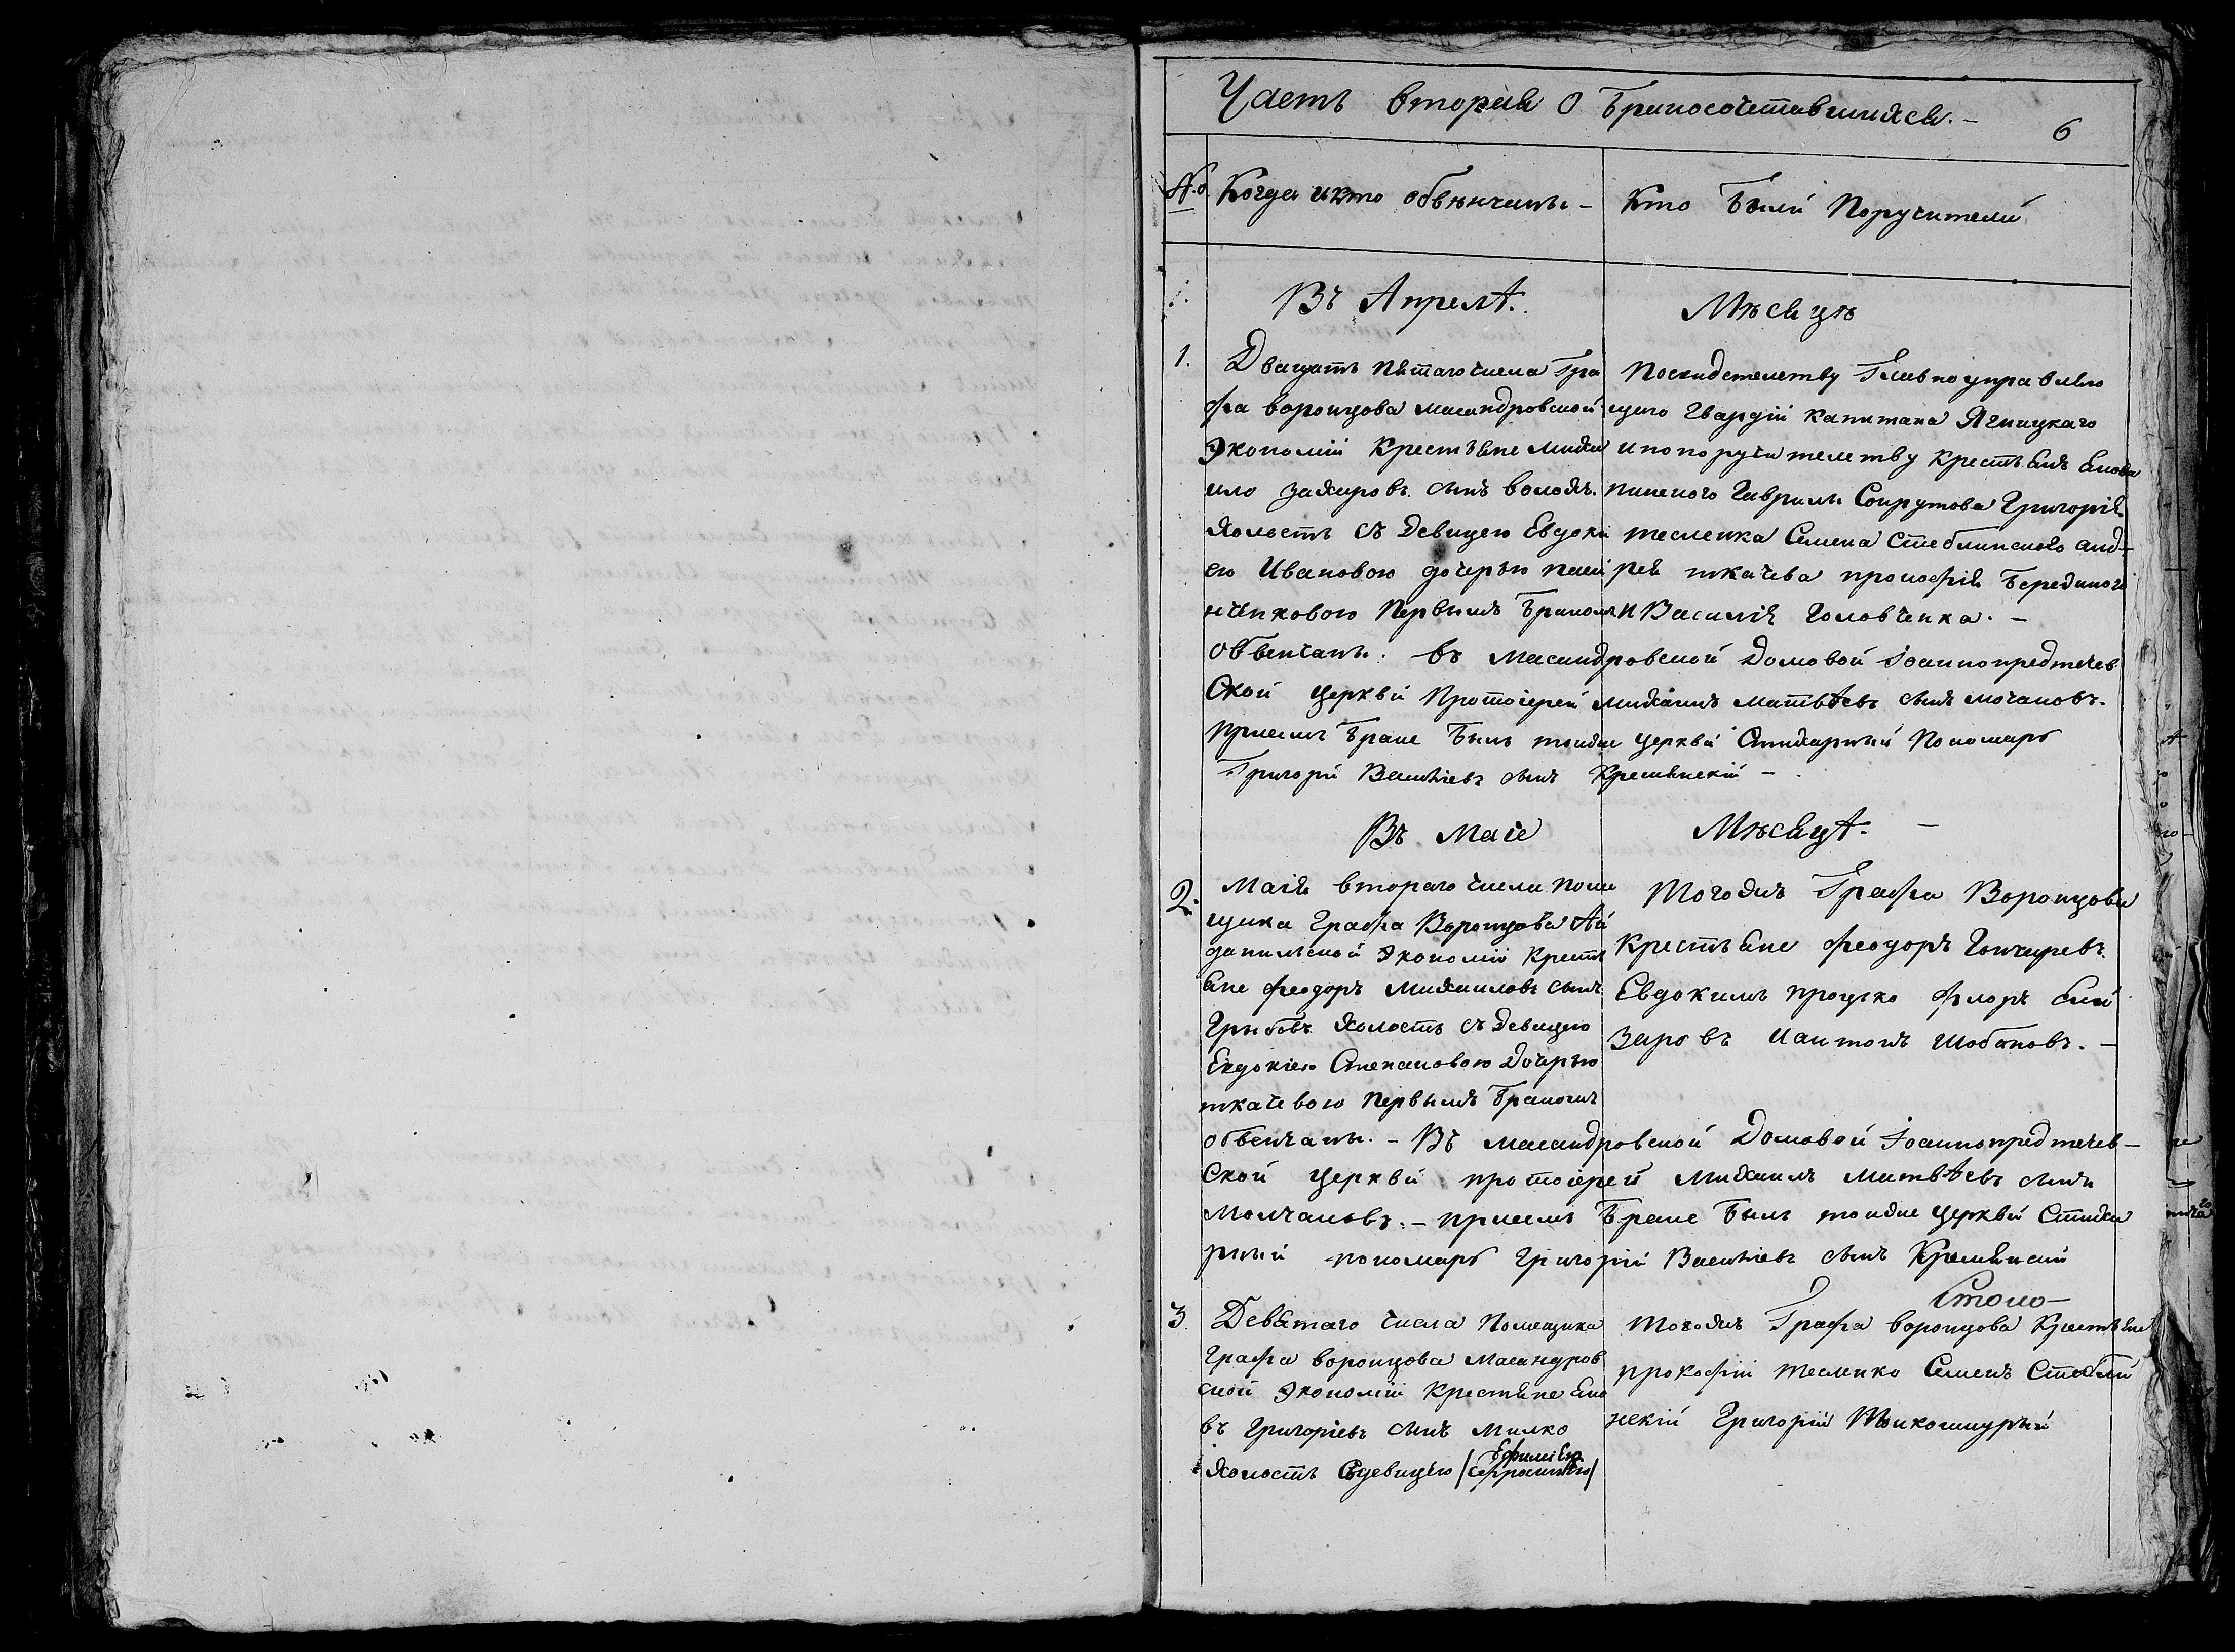 Часть вторая О Бракосочетавшихся. -
6
№ Когда и кто обвѣнчаны -
Кто Были Поручители
Въ Апрелѣ.
Мѣсяцѣ
1. Двацать пятаго числа Гра
фа воронцова масандровской
Экономіи Крестьяне Миха
ило захаровъ сынъ
холостъ съ Девицею Евдоки
ею Ивановою дочерью
Первымъ Бракомъ
Главноуправляю
щаго Гвардіи Капитана Ягницкаго
и по поручителству крестьянъ
Гаврилы Григорія
тесленка Семена Стеблинского анд-
рея ткачева прокофія
И Василія Головченка. -
обвенчаны. въ Масандровской Домовой Іоаннопредтечев
Ской церкви Протоіерей михаилъ матвѣевъ сынъ мочановъ.
присемъ Браке Былъ тояже церкви Стихарный Пономарь
Григорій Василіевъ сынъ Кремянскій -
Въ Маіе
Мѣсяцѣ. -
2. Маія втораго числа поме
щика Графа Воронцова Ай
данильской Экономіи Кресть
яне феодоръ Михаиловъ сынъ
Грибовъ холостъ съ девицею
Евдокіею Степановою Дочерью
ткачевою Первымъ Бракомъ
Тогожъ Графа Воронцова
Крестьяне феодоръ Гончаревъ
Евдокимъ процько флоръ
заровъ Иантонъ Шобановъ. -
обвенчаны. - Въ масандровской Домовой Іоаннопредтечев-
Ской церкви протоіерей Михаилъ Матвѣевъ сынъ
Молчановъ. - присемъ Браке Былъ тояже церкви Стиха
рный пономарь Григорій Василіевъ сынъ Кремянскій
3. Девятаго числа Помещика
Графа воронцова Масандров
ской Экономіи Крестьяне Яко
въ Григоріевъ сынъ Милко
холостъ Сдевицею
Тогожъ Графа воронцова Крестьяне
прокофій тесленко Семенъ Стебли
нскій Григорій